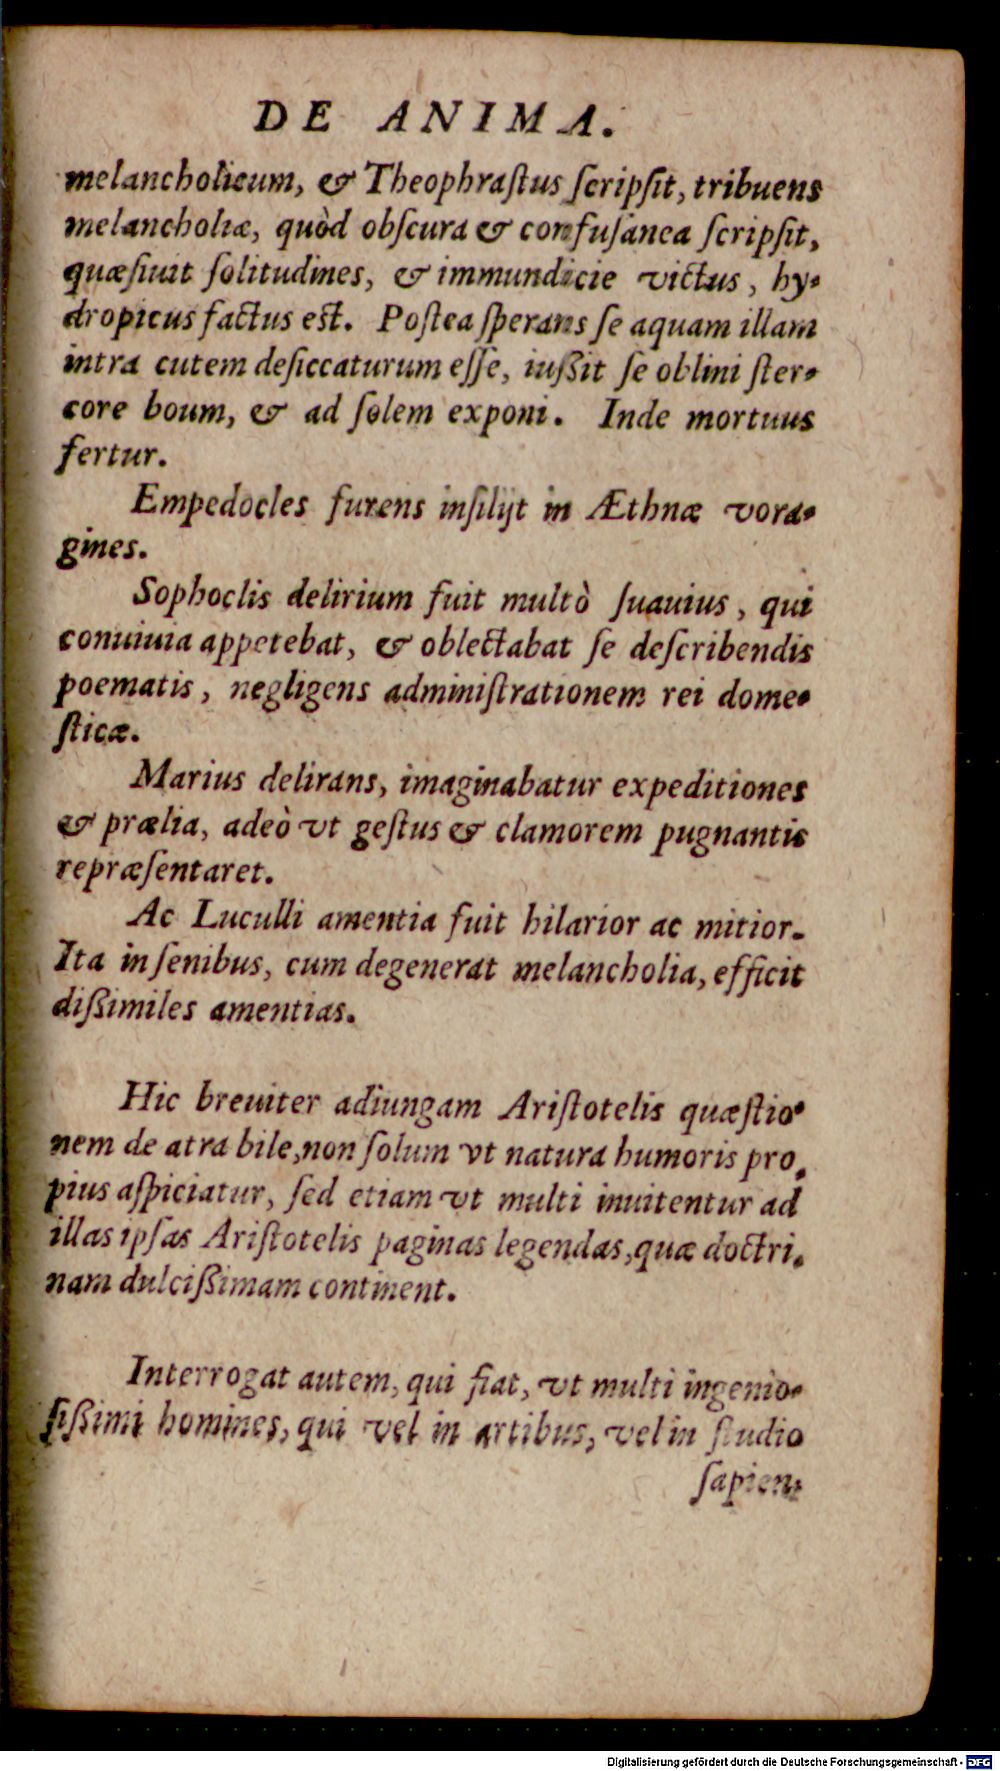 DE ANIMA.
melancholicum, & Theophraſtus ſcripſit, tribuens
melancholiæ, quòd obſcura & confuſanea ſcripſit,
quæſiuit ſolitudines, & immundicie victus, hy-
dropicus factus est. Poſtea ſperans ſe aquam illam
intra cutem deſiccaturum eſſe, iußit ſe oblini ſter-
core boum, & ad ſolem exponi. Inde mortuus
fertur.
Empedocles furens inſilijt in Æthnæ vora-
gines.
Sophoclis delirium fuit multò ſuauius, qui
conuiuia appetebat, & oblectabat ſe deſcribendis
poematis, negligens adminiſtrationem rei dome-
ſticæ.
Marius delirans, imaginabatur expeditiones
& prælia, adeò vt geſtus & clamorem pugnantis
repræſentaret.
Ac Luculli amentia fuit hilarior ac mitior.
Ita in ſenibus, cum degenerat melancholia, efficit
dißimiles amentias.
Hic breuiter adiungam Ariſtotelis quæſtio-
nem de atra bile, non ſolum vt natura humoris pro-
pius aſpiciatur, ſed etiam vt multi inuitentur ad
illas ipſas Ariſtotelis paginas legendas, quæ doctri-
nam dulcißimam continent.
Interrogat autem, qui fiat, vt multi ingenio-
ſißimi homines, qui vel in artibus, vel in ſtudio
ſapien-
Digitalisierung gefördert durch die Deutsche Forschungsgemeinschaft - DFG